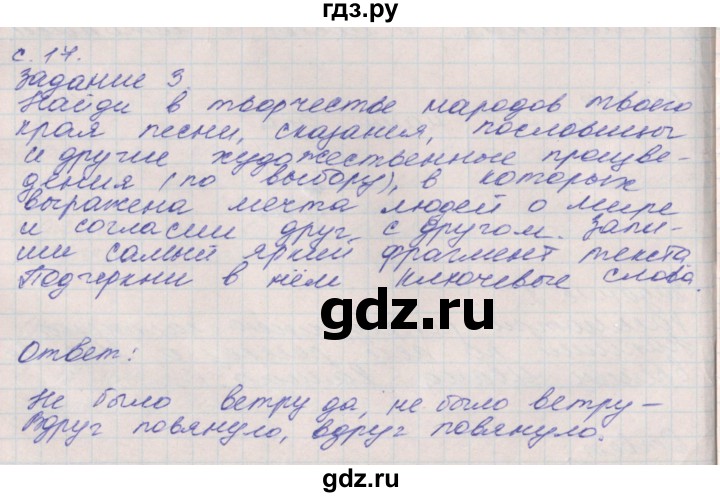 гдз.ру
с. 17.
Задание 3
Найди в творчестве народов твоего
края песни, сказания, пословицы
и другие художественные произве-
дения (по выбору), в которых
выражена мечта людей о мире
и согласии друг с другом. Запи-
ши самый яркий фрагмент текста.
Подчеркни в нём ключевые слова.
gdz.ru
Ответ:
Не было ветру да, не было ветру –
Вдруг повянуло, вдруг повянуло.
gdz.ru